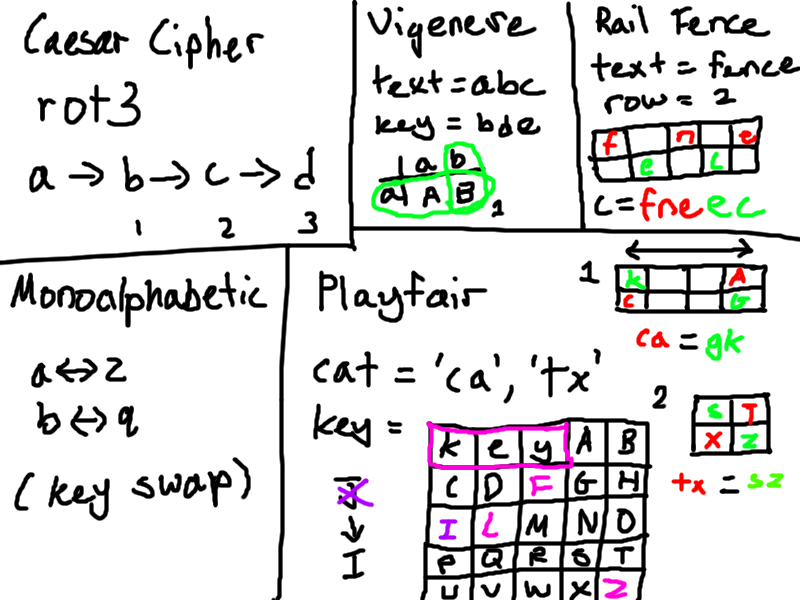 Caesar Cipher
rot3
a → b → c → d
1 2 3
Vigenere
text = abc
key = bde
a b
a A B
1
Rail Fence
text = fence
row = 2
f n e
e c
c = fne ec
Monoalphabetic
a ↔ z
b ↔ q
(key swap)
Playfair
cat = 'ca', 'tx'
key =
k e y A B
C D F G H
I L M N O
P Q R S T
U V W X Z
↓
I
1
k A
c G
ca = gk
2
S T
X Z
tx = sz